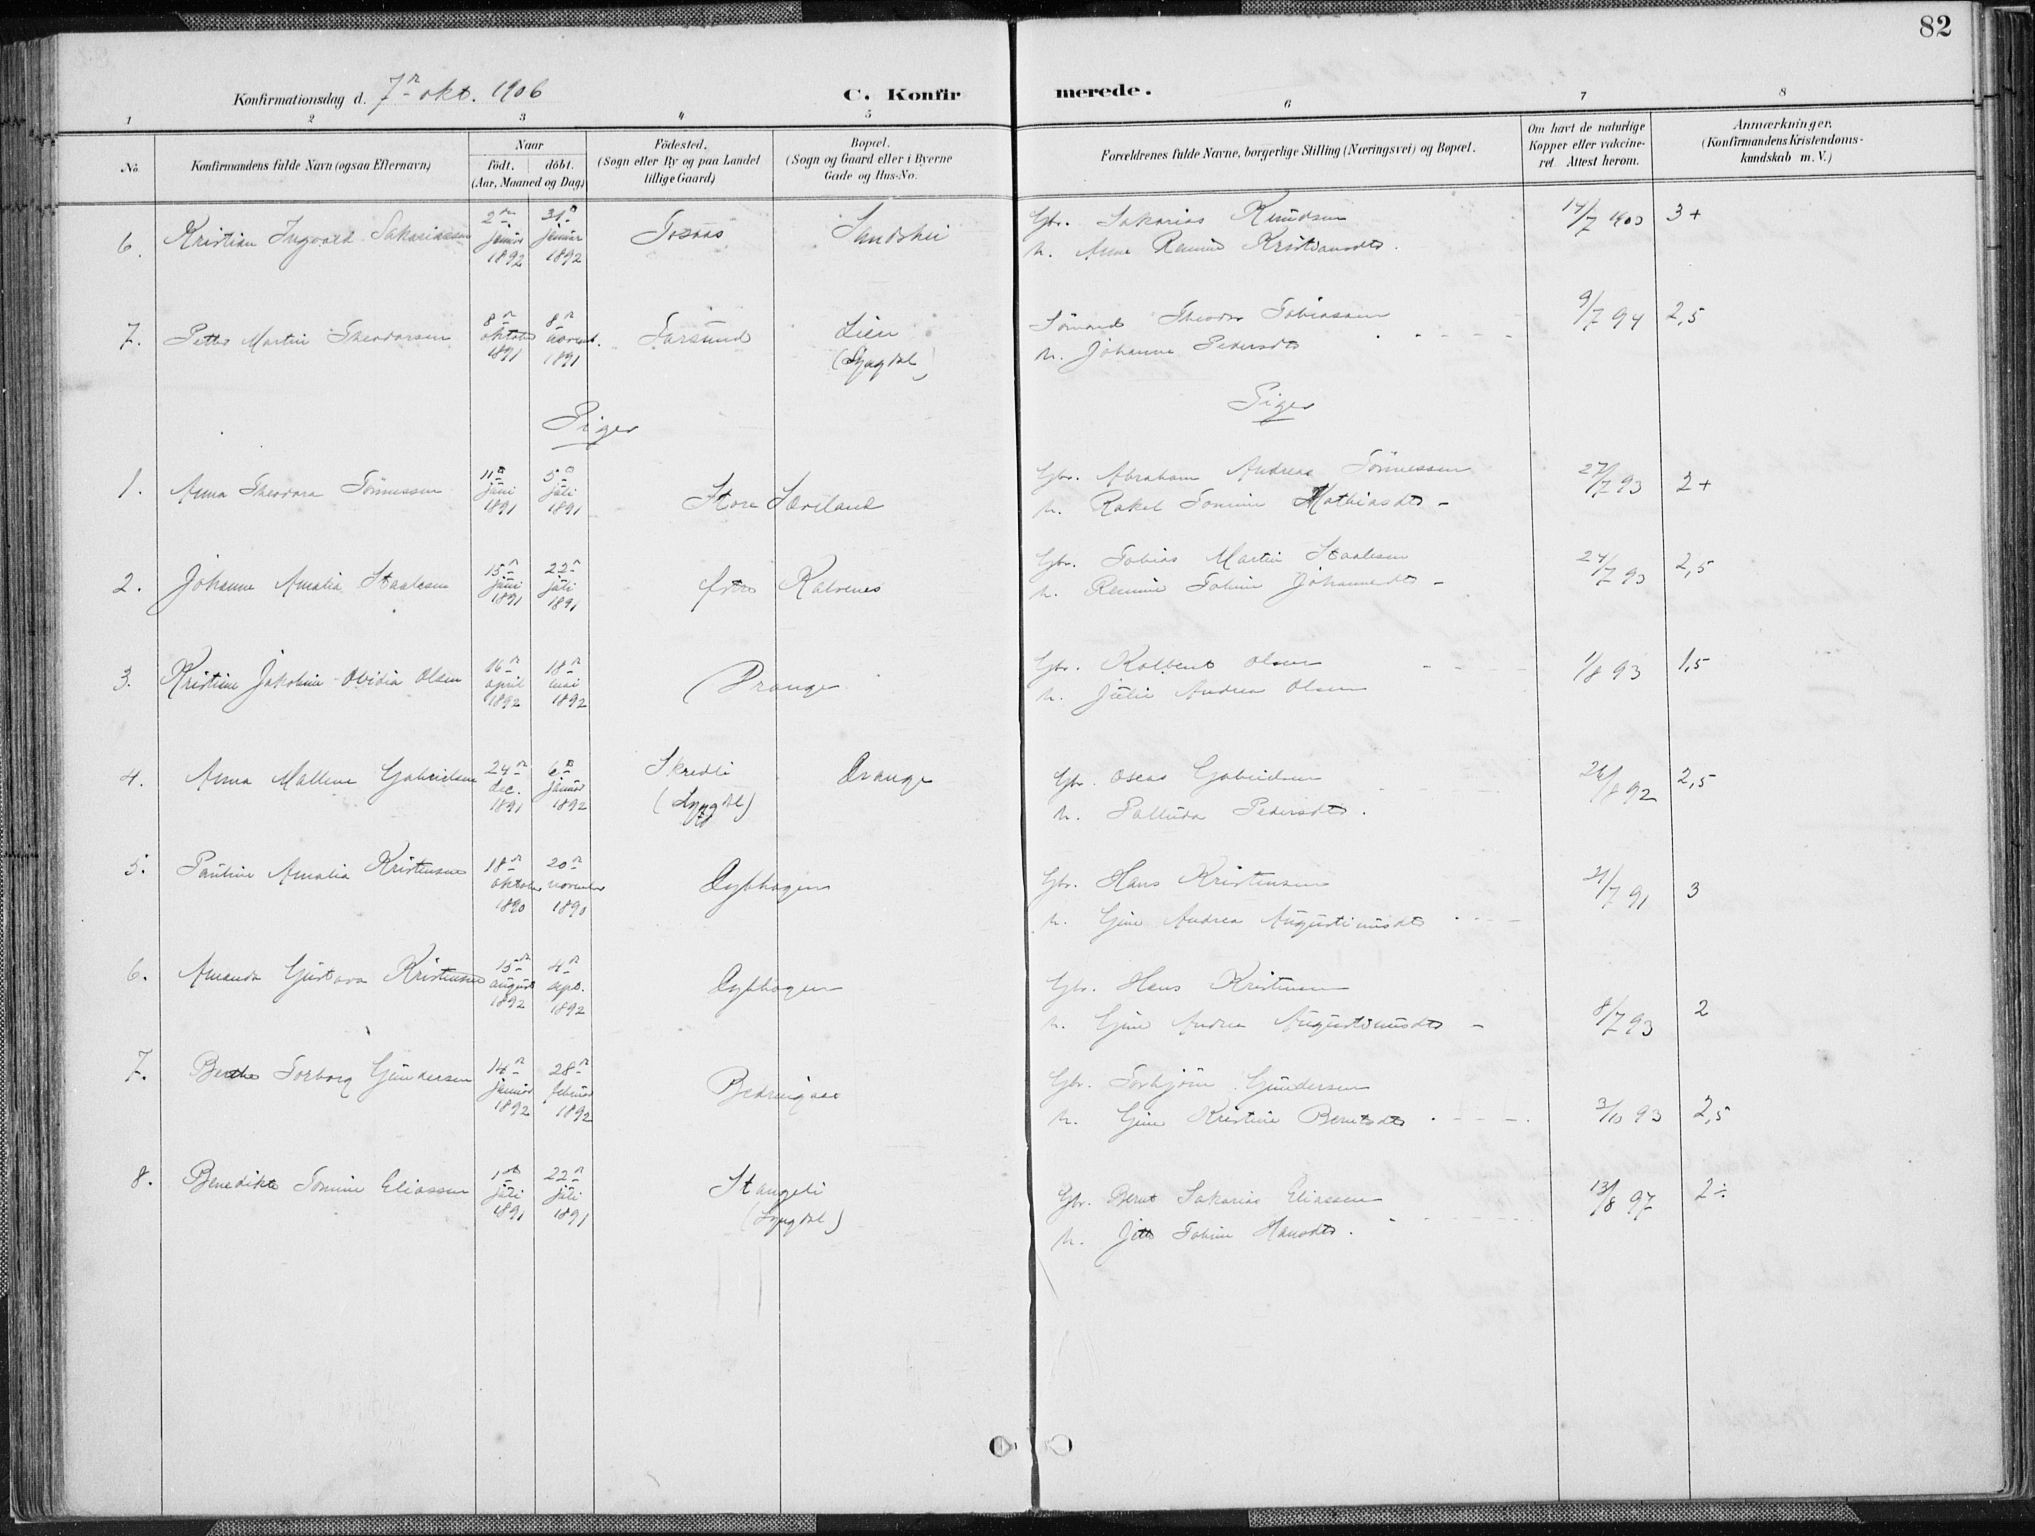 82
Konfirmationsdag d. 7de okt. 1906
C. Konfirmerede.
1 2 3 4 5 6 7 8
No. Konfirmandens fulde Navn (ogsaa Efternavn) Naar födt. döbt. (Aar, Maaned og Dag) Födested. (Sogn eller By og paa Landet tillige Gaard) Bopæl. (Sogn og Gaard eller i Byerne Gade og Hus-No. Forældrenes fulde Navne, borgerlige Stilling (Næringsvei) og Bopæl. Om havt de naturlige Kopper eller vakcineret. Attest herom. Anmærkninger. (Konfirmandens Kristendomskundskab m. V.)
6. Kristian Ingvald Sakariassen 2 januar 1892 31 januar 1892 Sandshei Gbr. Sakarias Knudsen 17/7 1900 3+
h. Anna Kristiansdt.
7. Petter Martin Theodorsen 8 oktober 1891 8 novemb. 1891 Farsund Lien (Lyngdal) Sömand Theodor Tobiassen 9/7 94 2,5
h. Johanne Pedersdt
Piger
Piger
1. Anna Theodora Tönnessen 11 juni 1891 5 juli 1891 Store Sæviland Gbr. Abraham Andreas Tönnessen 27/7 93 2+
h. Rakel Tomine Mathiasdt -
2. Johanne Amalia Staalesen 15 juni 1891 22 juli 1891 Östre Kalvenes Gbr. Tobias Martin Staalesen 27/7 93 2,5
h. Tobine Johannesdt -
3. Kristine Jakobine Ovidia Olsen 16 april 1892 18 mai 1892 Drange Gbr. Kolbent Olsen 1/8 93 1,5
h. Julie Andrea Olsen
4. Anna Mallene Gabrielsen 24 dec. 1891 6 januar 1892 Skredli (Lyngdal) Drange Gbr. Oscar Gabrielsen 26/8 92 2,5
h. Pedersdt.
5. Pauline Amalia Kristensen 18 oktober 1890 20 november 1890 Dybhagen Gbr. Hans Kristensen 21/7 91 3
h. Gine Andrea Augustinusdt
6. Amanda Gustava Kristensen 15 august 1892 4 sept. 1892 Dybhagen Gbr. Hans Kristensen 8/7 93 2
h. Gine Andrea Augustinusdt -
7. Berthe Torborg Gundersen 14 januar 1892 28 februar 1892 Gbr. Torbjörn Gundersen 3/10 93 2,5
h. Gine Kristine Berntsdt
8. Benedikte Tomine Eliassen 1 juli 1891 22 juli 1891 Stangeli (Lyngdal) Gbr. Bernt Sakarias Eliassen 13/8 97 2÷
h. Tobine Hansdt.